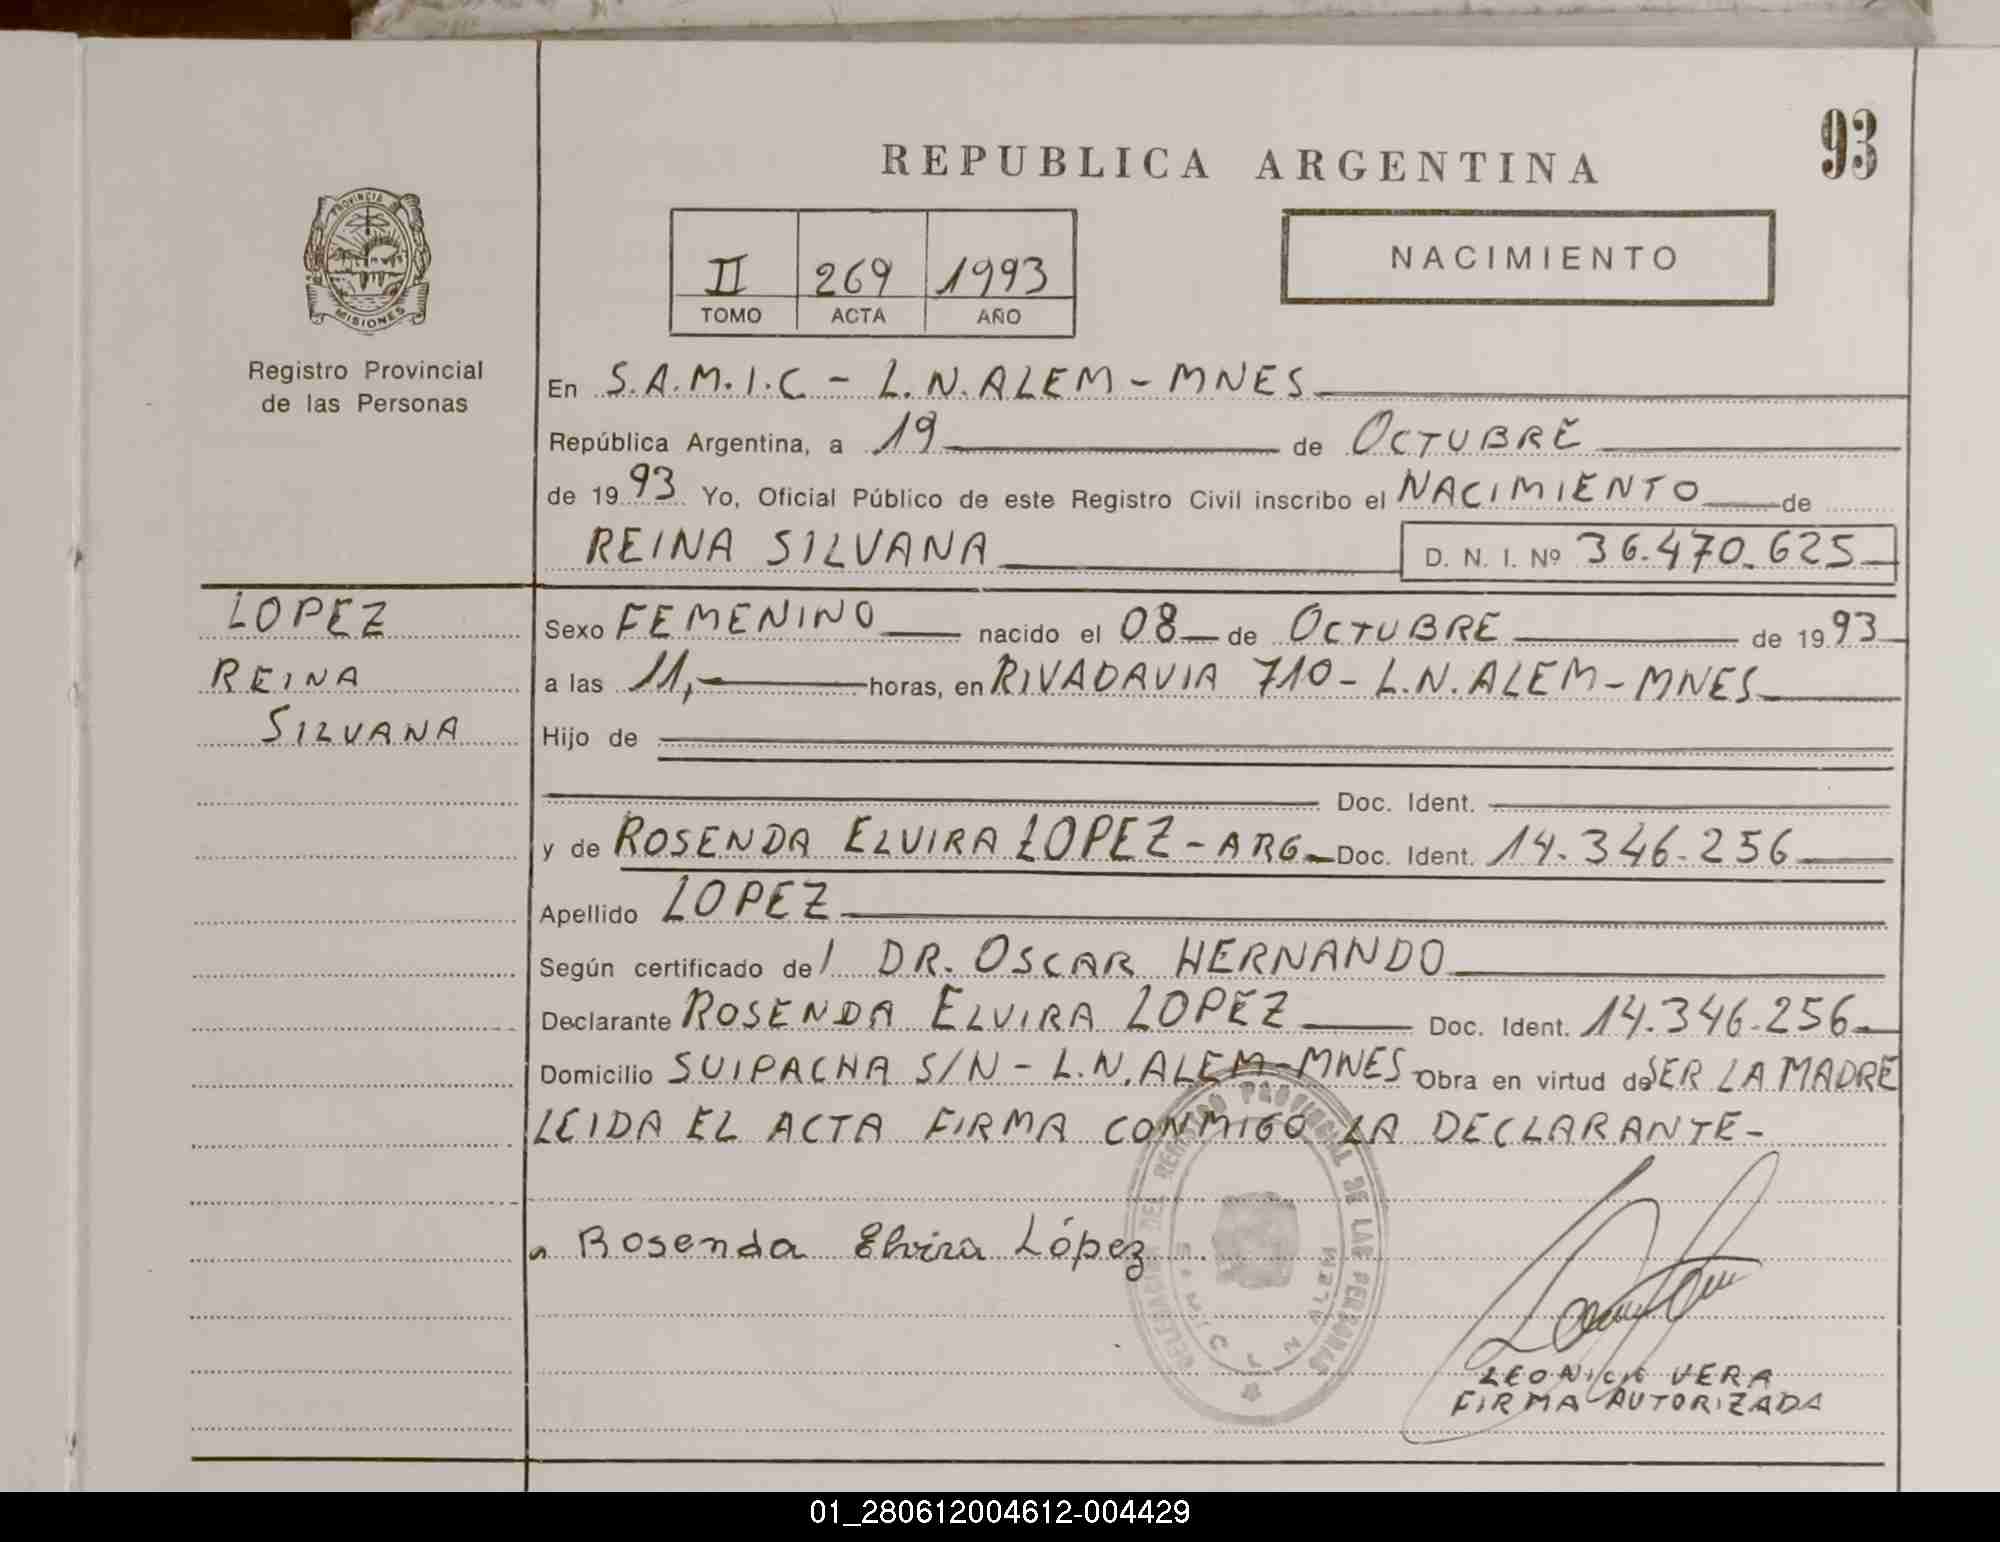 93
REPUBLICA ARGENTINA
PROVINCIA DE
MISIONES
Registro Provincial
de las Personas
II 269 1993
TOMO ACTA AÑO
NACIMIENTO
En S.A.M.I.C - L.N. ALEM - MNES
República Argentina, a 19 de OCTUBRE
de 1993 Yo, Oficial Público de este Registro Civil inscribo el NACIMIENTO de
REINA SILVANA D. N. I. Nº 36.470.625
LOPEZ
REINA
SILVANA
Sexo FEMENINO nacido el 08 de OCTUBRE de 1993
a las 11,- horas, en RIVADAVIA 710 - L.N. ALEM - MNES
Hijo de
Doc. Ident.
y de ROSENDA ELVIRA LOPEZ - ARG Doc. Ident. 14.346.256
Apellido LOPEZ
Según certificado del DR. OSCAR HERNANDO
Declarante ROSENDA ELVIRA LOPEZ Doc. Ident. 14.346.256
Domicilio SUIPACHA S/N - L.N. ALEM - MNES Obra en virtud de SER LA MADRE
LEIDA EL ACTA FIRMA CONMIGO LA DECLARANTE -
Rosenda Elvira López
DEL REGISTRO PROVINCIAL DE LAS PERSONAS
SAMIC L N ALEM
VERA
FIRMA AUTORIZADA
01_280612004612-004429